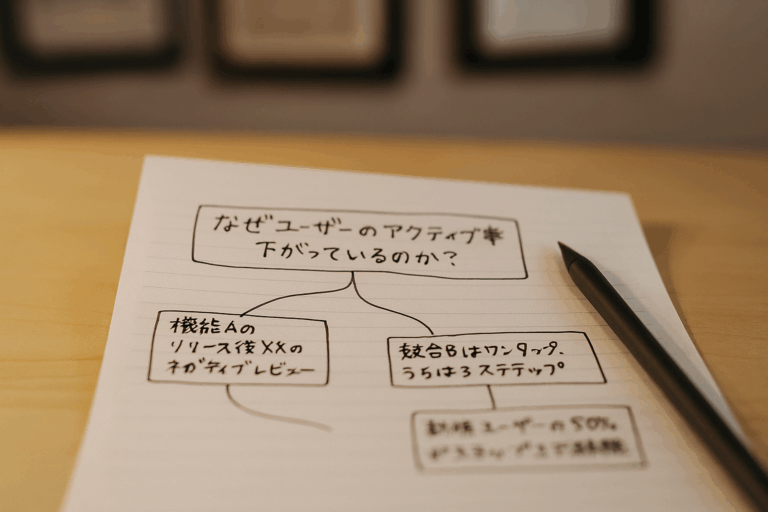 なぜユーザーのアクティブ率
下がっているのか?
機能Aの
リリース後XXの
ネガティブレビュー
競合Bはワンタップ、
うちは3ステテップ
新規ユーザーの50%